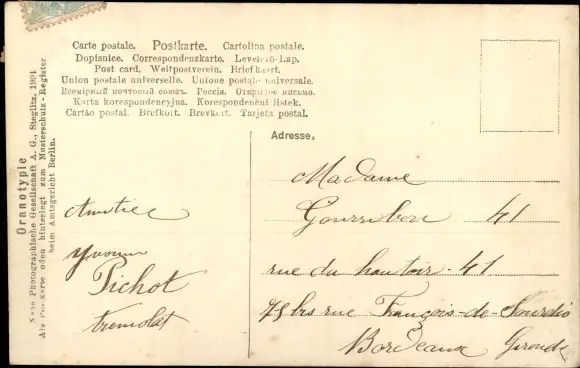 Carte postale. Postkarte. Cartolina postale.
Dopisnice. Correspondenzkarte. Levelező-Lap.
Post card. Weltpostverein. Briefkaart.
Union postale universelle. Unione postale universale.
Всемірный почтовый союзъ. Россія. Открытое письмо.
Karta korespondencyjna. Korespondenční listek.
Cartão postal. Brefkort. Brevkort. Tarjeta postal.
Oranotypie
Neue Photographische Gesellschaft A. G., Steglitz. 1904
Als Postkarte oden hinterlegt zum Musterschutz-Register
beim Amtsgericht Berlin.
Adresse.
Amitiés
Yvonne
Pichot
Tremolat
Madame
41
rue du hautoir 41
bis rue François-de-Sourdis
Bordeaux Gironde